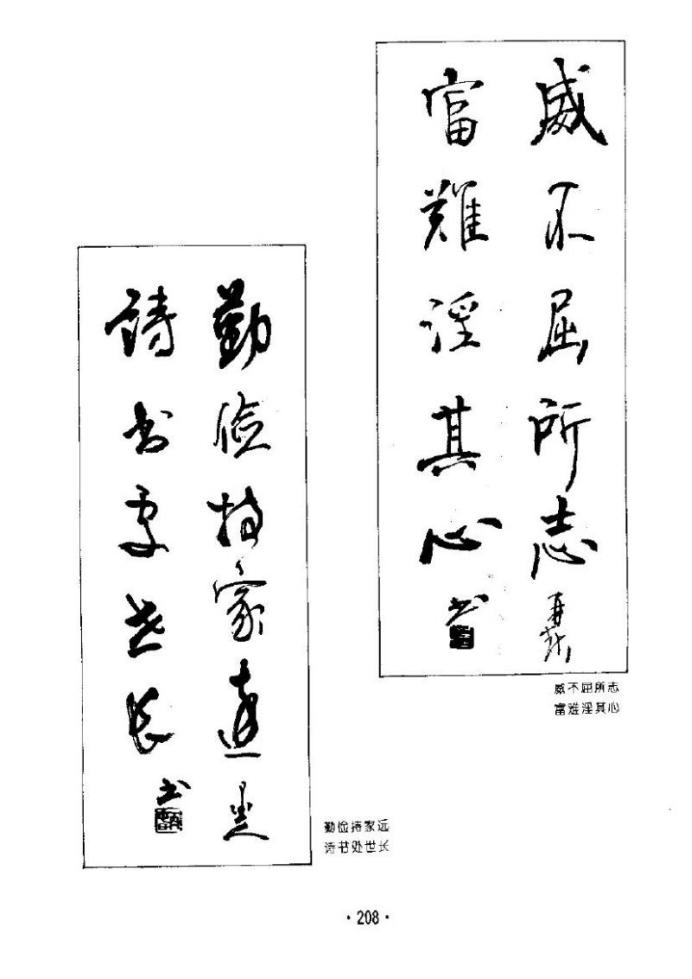 威不屈所志
富難淫其心
书
威不屈所志
富难淫其心
勤儉持家遠
詩书处世长
书
勤俭持家远
诗书处世长
·208·